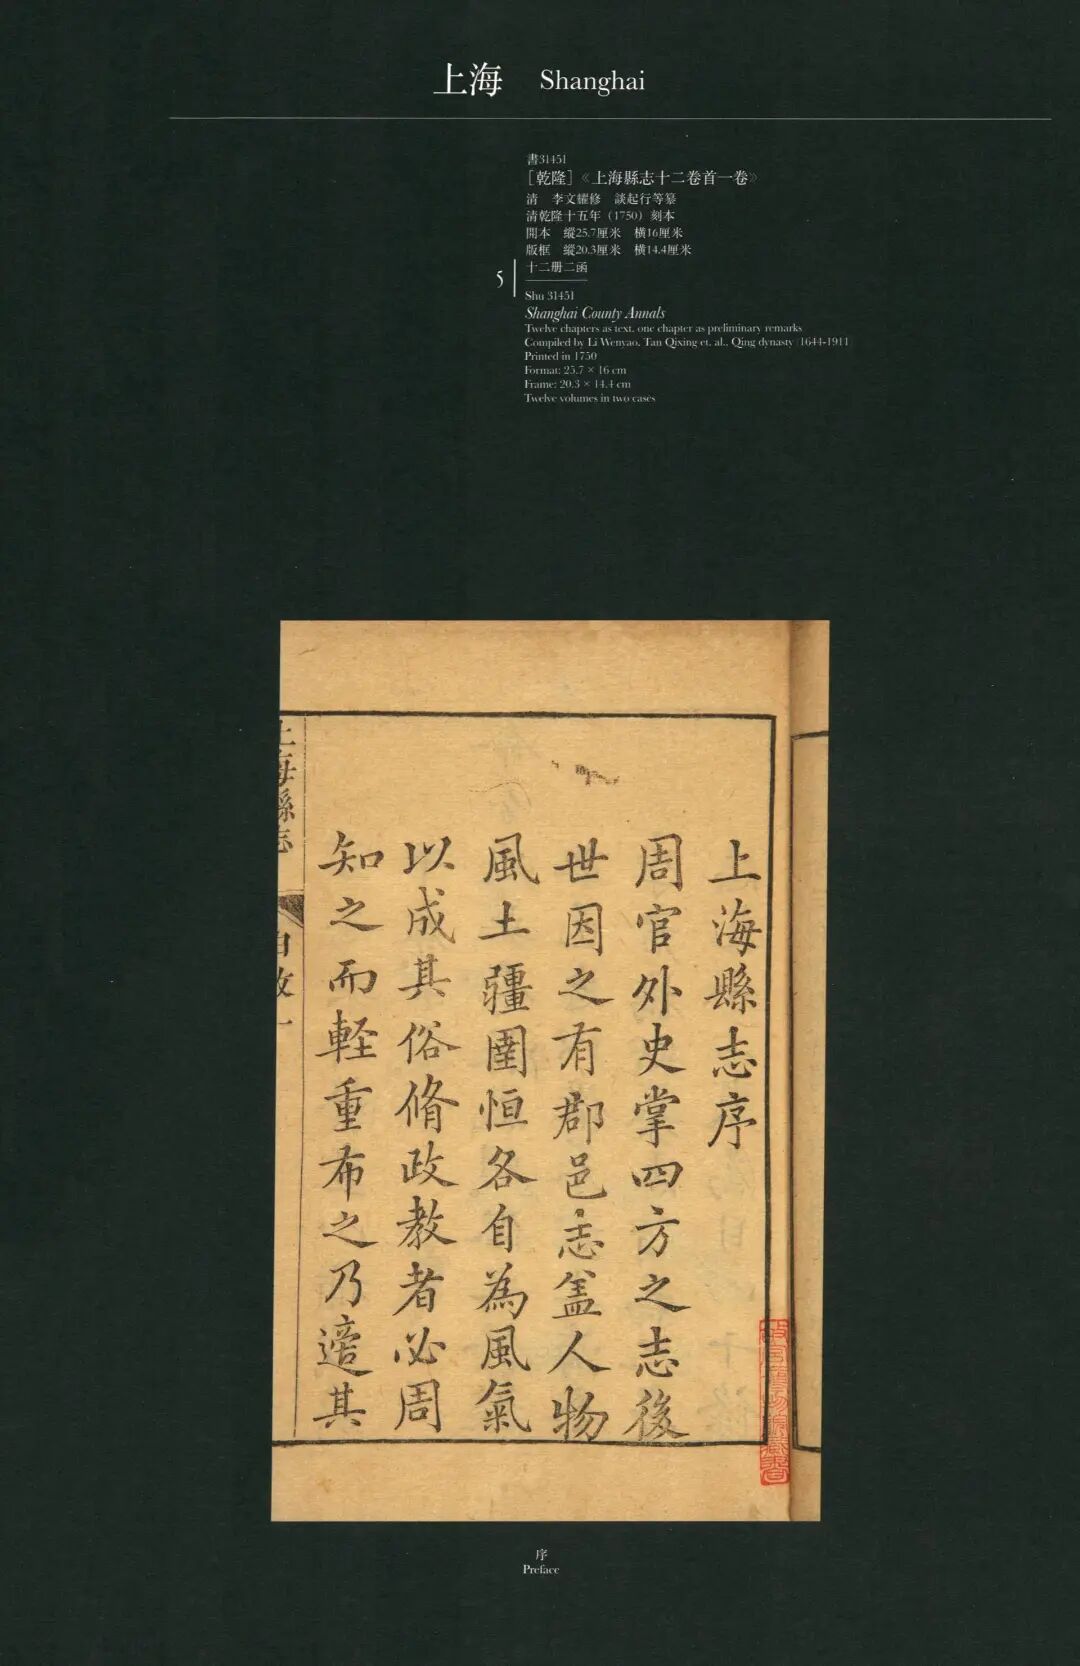 上海 Shanghai
書31451
[乾隆]《上海縣志十二卷首一卷》
清 李文耀修 談起行等纂
清乾隆十五年（1750）刻本
開本 縱25.7厘米 橫16厘米
版框 縱20.3厘米 橫14.4厘米
十二册二函
5
Shu 31451
Shanghai County Annals
Twelve chapters as text, one chapter as preliminary remarks
Compiled by Li Wenyao, Tan Qixing et. al., Qing dynasty (1644-1911)
Printed in 1750
Format: 25.7 × 16 cm
Frame: 20.3 × 14.4 cm
Twelve volumes in two cases
上海縣志序
周官外史掌四方之志後
世因之有郡邑志盖人物
風土疆圉恒各自為風氣
以成其俗脩政教者必周
知之而軽重布之乃適其
上海縣志
序
Preface